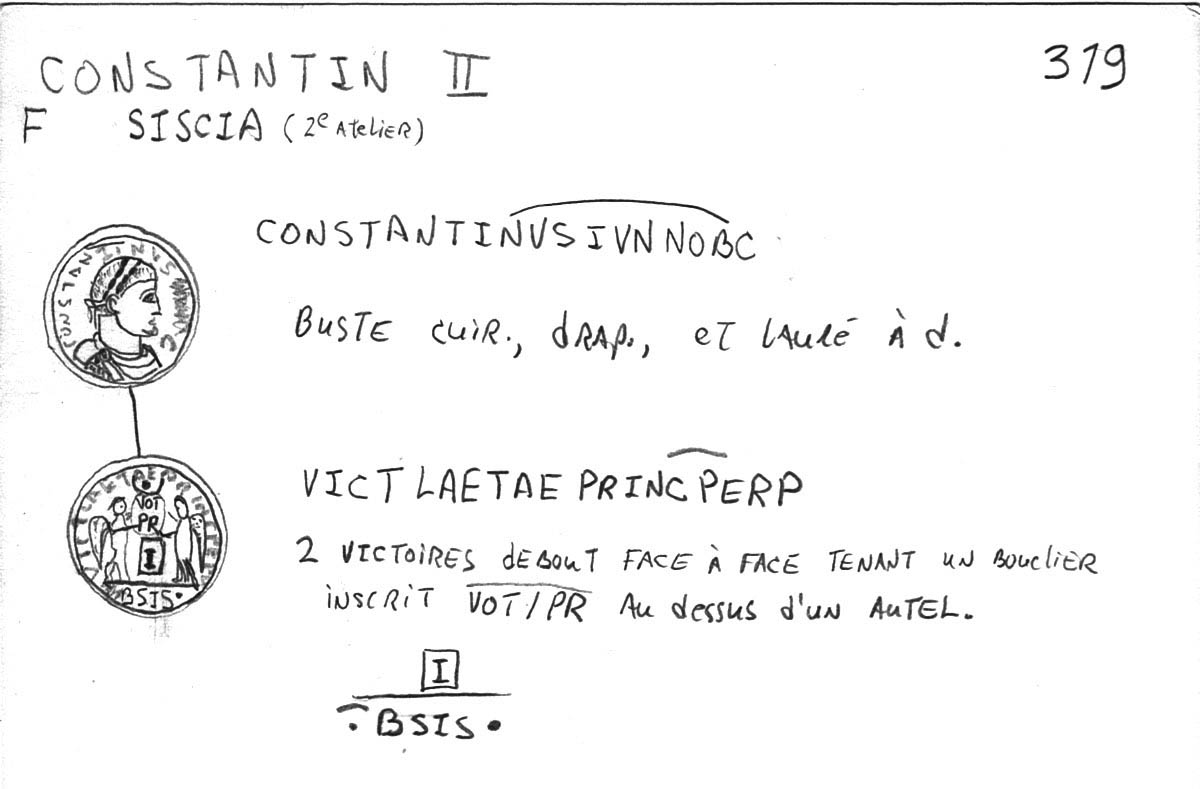 CONSTANTIN II 319
F SISCIA (2e Atelier)
CONSTANTINVS IVN NOB C
BUSTE CUIR., dRAP., ET LAURÉ À d.
CONSTANTINVS C
VICT LAETAE PRINC PERP
2 VICTOIRES DEBOUT FACE À FACE TENANT UN BOUCLIER
INSCRIT VOT/PR AU dessus d'UN AUTEL.
VOT
PR
I
BSIS•
I
•BSIS•